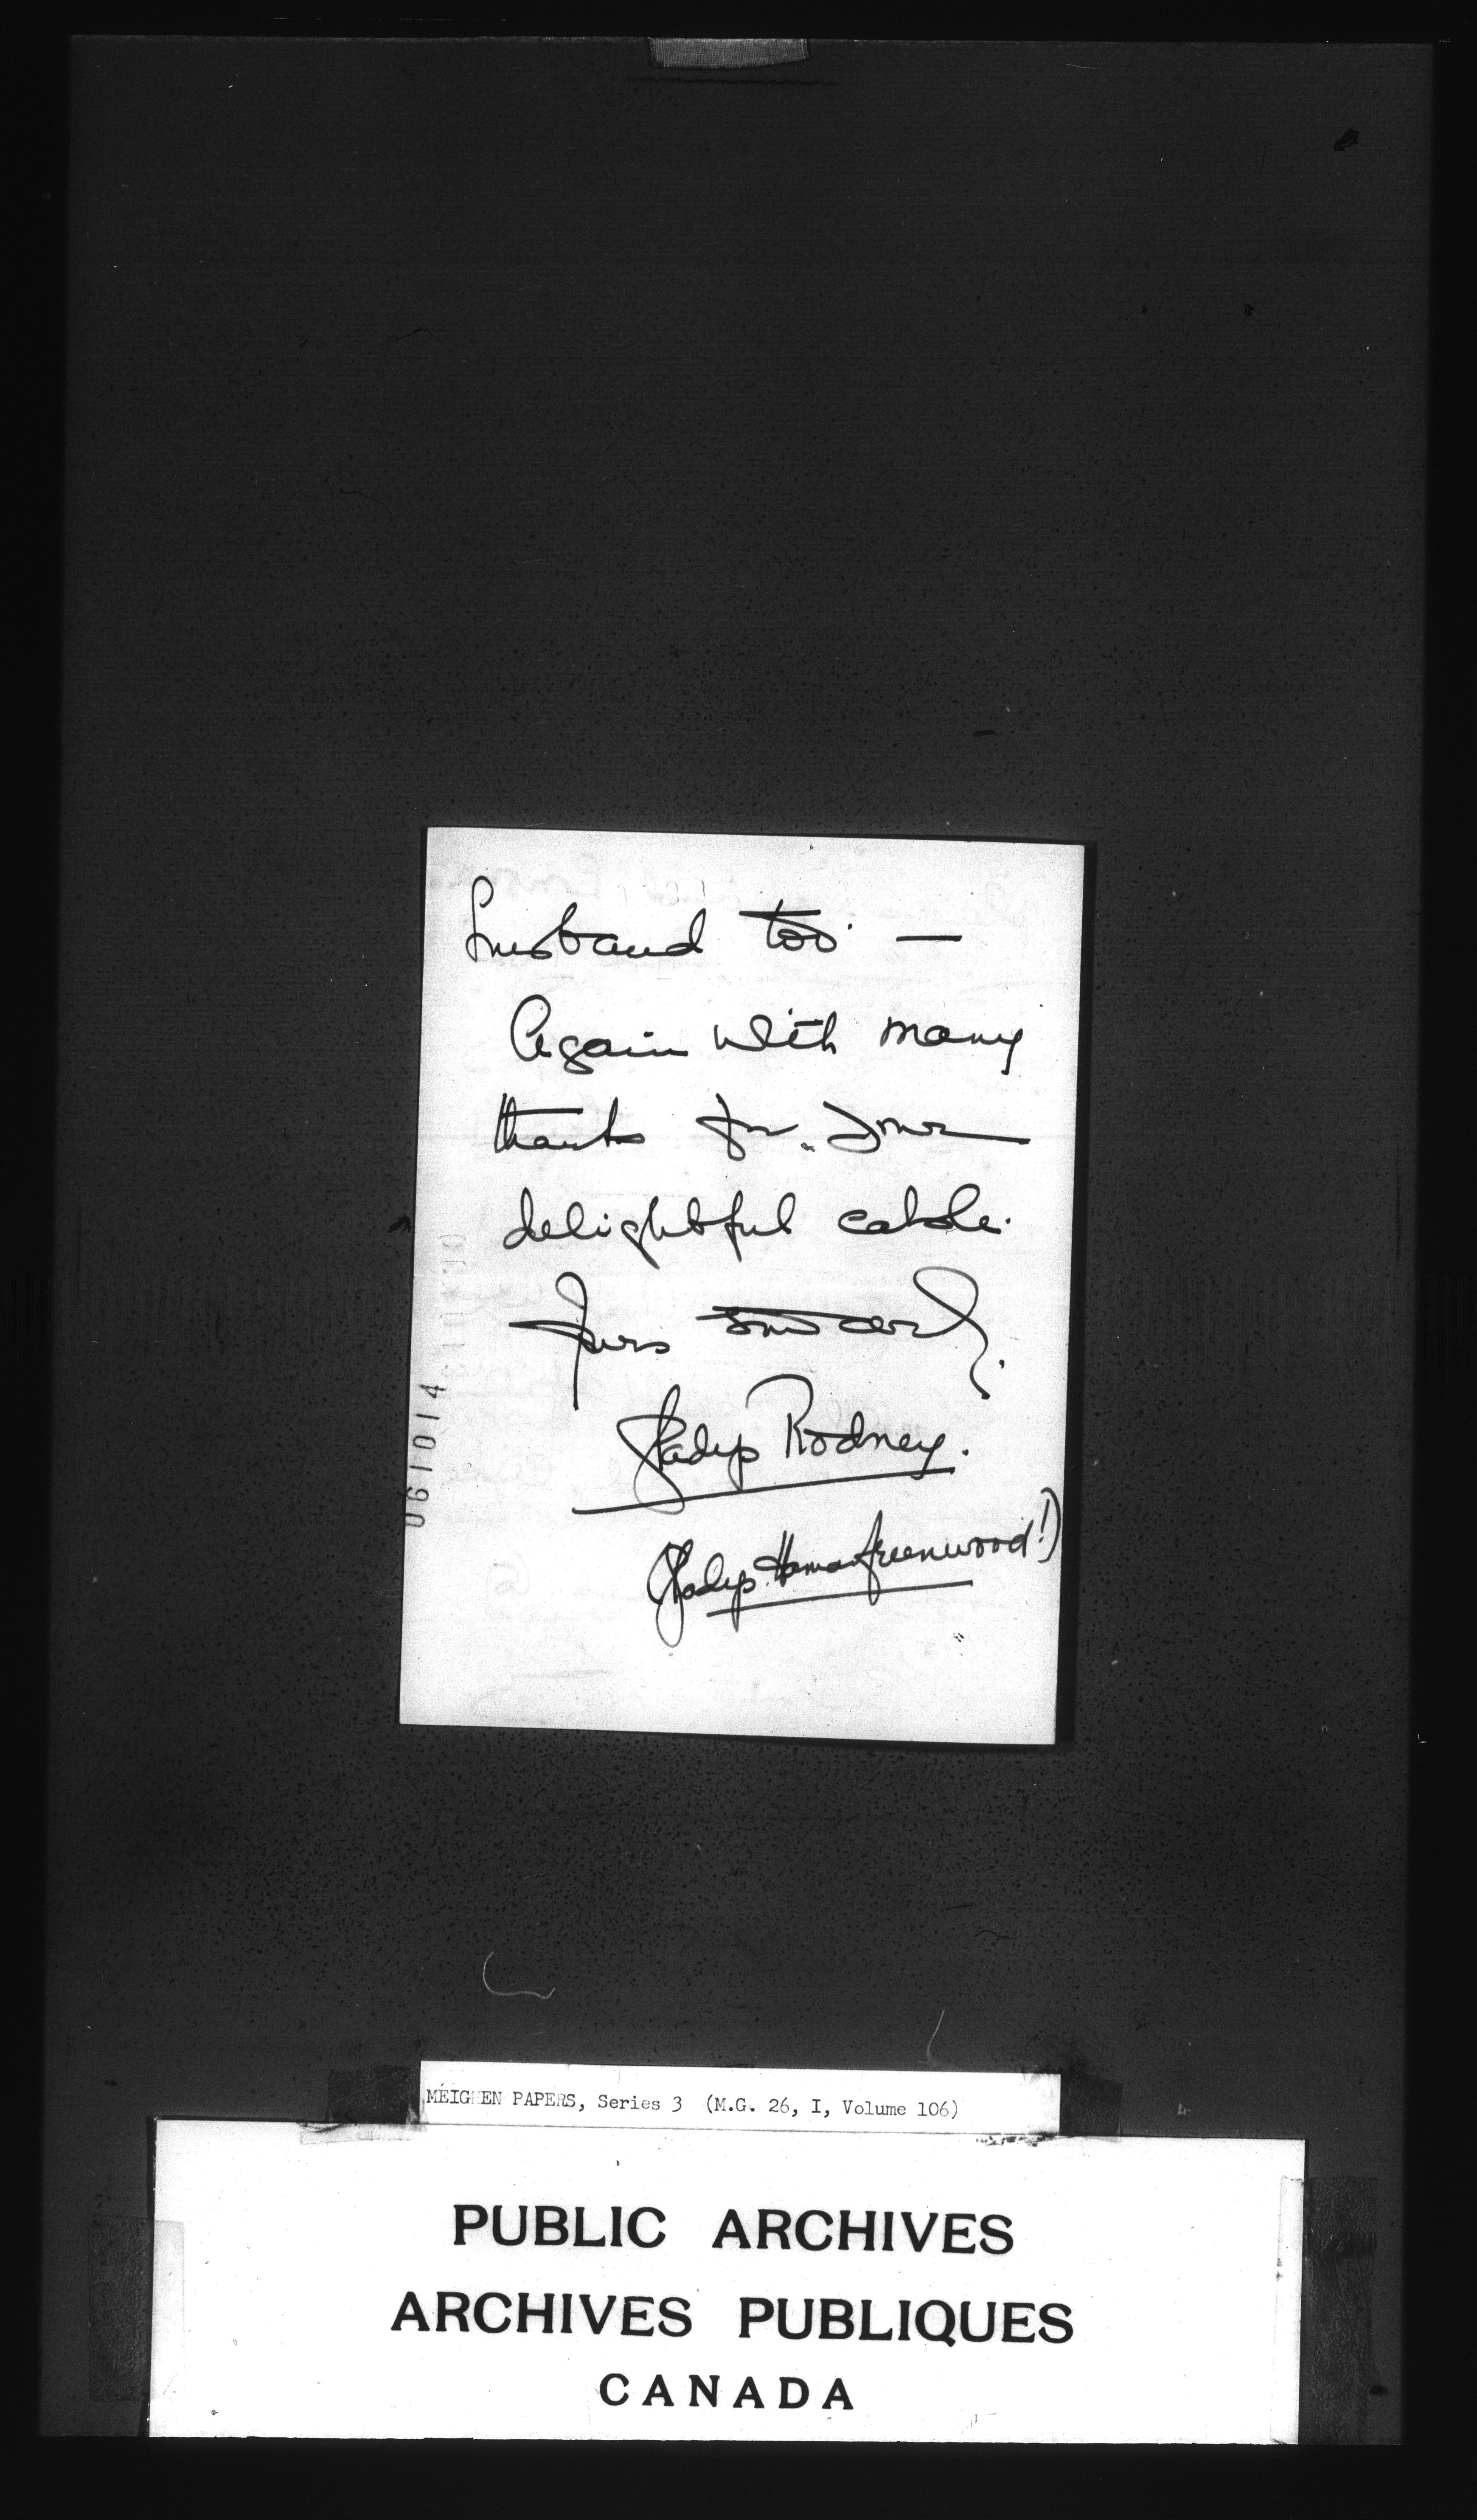 husband too —
Again with many
thanks for your
delightful cable.
Yrs sincerely.
Gladys Rodney.
(Gladys Hamar Greenwood!)
061014
MEIGHEN PAPERS, Series 3 (M.G. 26, I, Volume 106)
PUBLIC ARCHIVES
ARCHIVES PUBLIQUES
CANADA